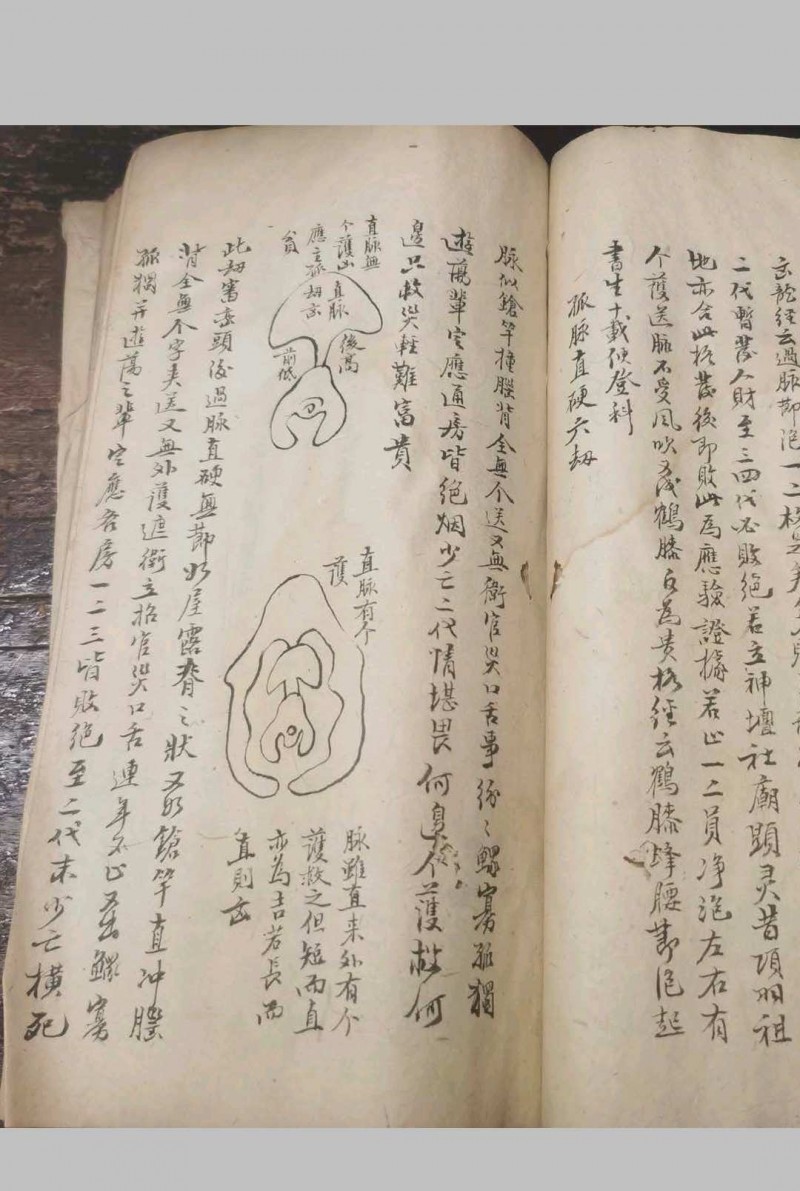 玄龍經云過脉節泡一二格
二代暫發人財至三四代必敗絕若立神壇社廟顯灵昔項羽祖
地亦合此格發後即敗此為應驗證據若止一二員净泡左右有
个護送脉不受風吹又成鶴膝反為貴格經云鶴膝蜂腰節泡起
書生十載便登科
孤脉直硬六刼
脉似鎗竿撞腦背全無个送又無衛官災口舌事紛〻鰥寡孤獨
遊蕩輩定應通房皆絕烟少亡二代情堪畏何
邊只救災輕難富貴
直脉無
个護山
應主孤
貧
直脉
刼云
後高
前低
直脉有个
護
脉雖直来外有个
護救之但短而直
亦為吉若長而
直則凶
此刼審
頭後過脉直硬無節如屋露脊之狀又如鎗竿直冲腦
背全無个字夾送又無外護遮衛立格官災口舌連年不止
鰥寡
孤獨并遊蕩之輩定應各房一二三皆敗絕至二代末少亡橫死